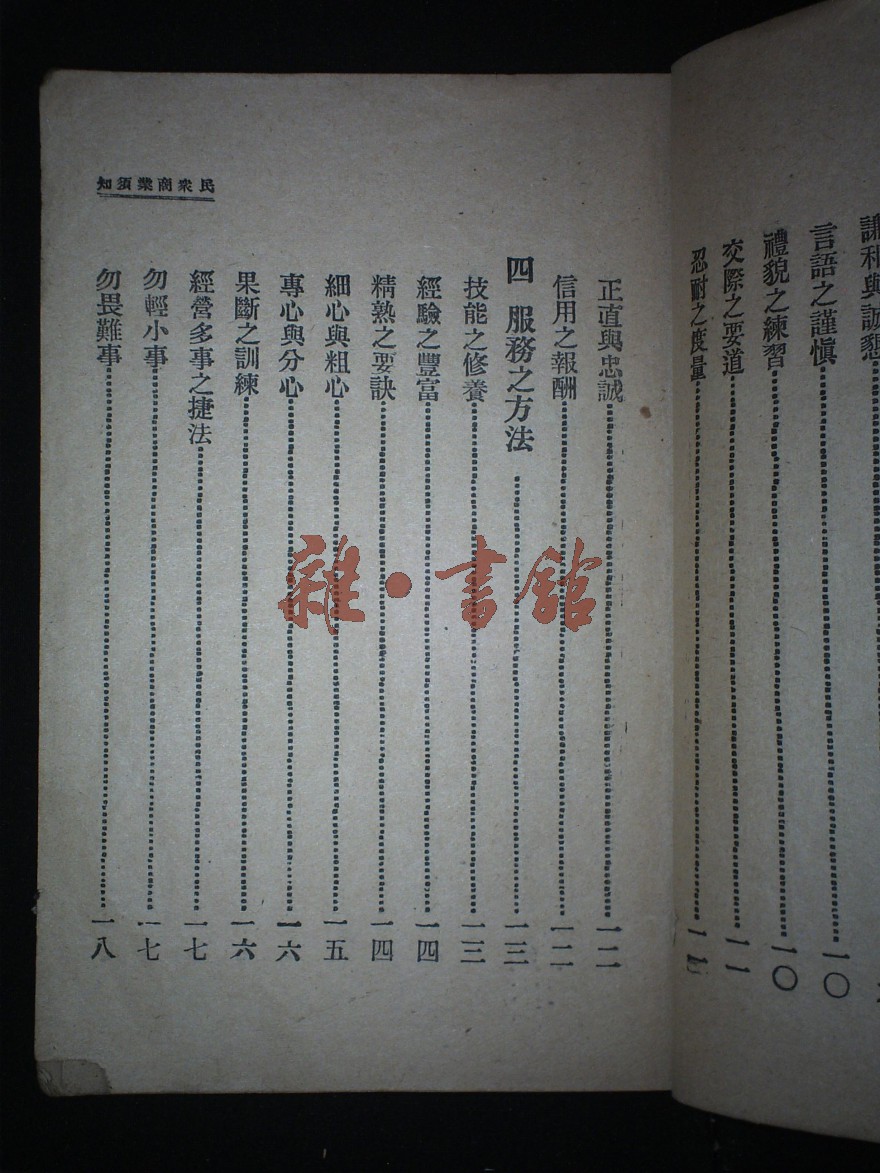 謙和與誠懇
言語之謹慎……一〇
禮貌之練習……一〇
交際之要道……一一
忍耐之度量……一
民衆商業須知
正直與忠誠……一二
信用之報酬……一二
四 服務之方法……一三
技能之修養……一三
經驗之豐富……一四
精熟之要訣……一四
細心與粗心……一五
專心與分心……一六
果斷之訓練……一六
經營多事之捷法……一七
勿輕小事……一七
勿畏難事……一八
雜·書館